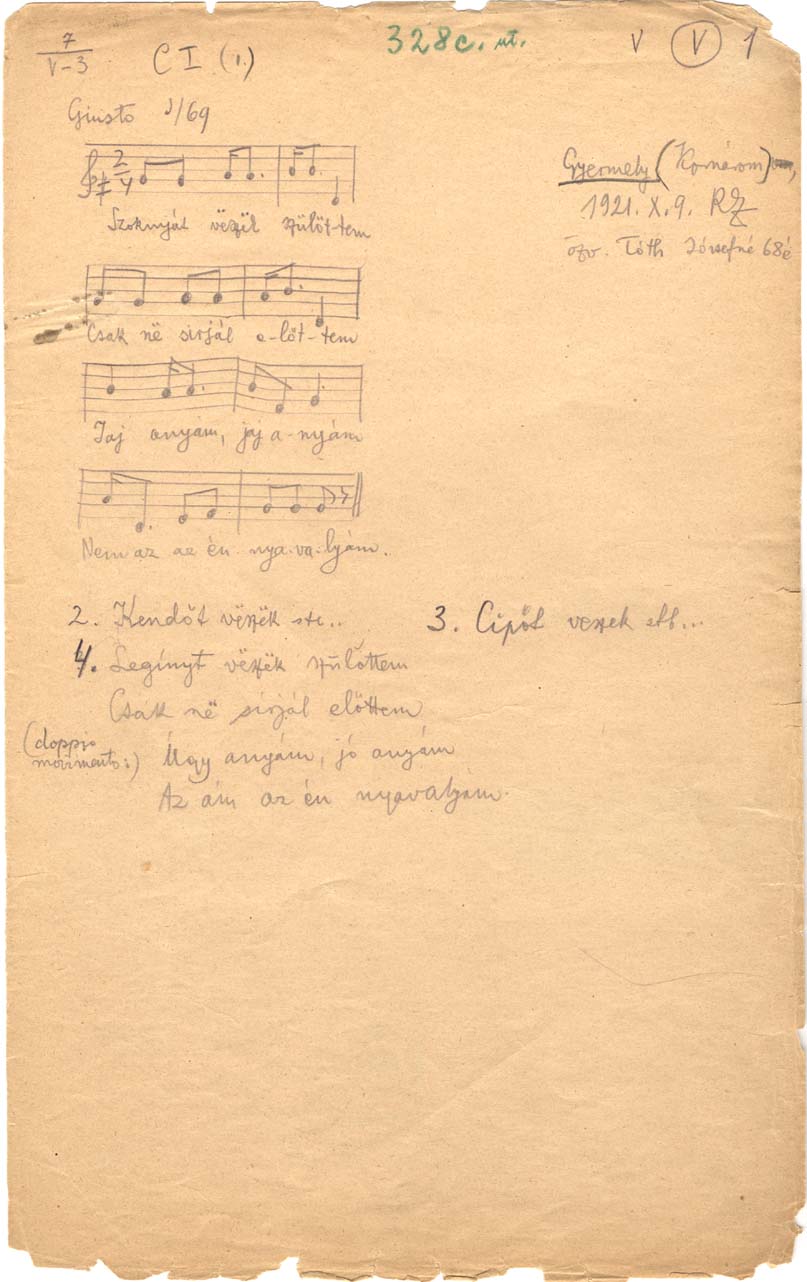 7
V-3
C I (1.)
328c. ut.
V (V) 1
Giusto ♩/69
2
4
Gyermely (Komárom),
1921. X. 9. RZ
özv. Tóth Józsefné 68é
Szoknyát vëszël szülöt-tem
Csak në sirjál e-löt-tem
Jaj anyám, jaj a-nyám
Nem az az én nya-va-lyám.
2. Kendőt vëszëk stc..
3. Cipőt veszek stb...
4. Legínyt vëszëk szülöttem
Csak në sirjál előttem
(doppio
movimento:) Úgy anyám, jó anyám
Az ám az én nyavalyám.